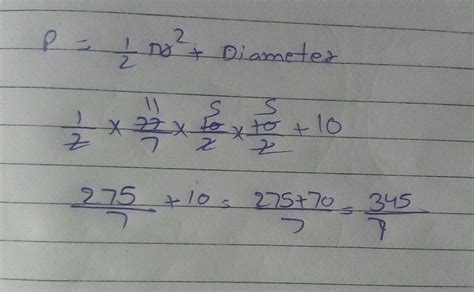 P = 1/2 πr² + Diameter
1/2 × 22/7 × 10/2 × 10/2 + 10
11 5 5
275/7 + 10 = 275+70/7 = 345/7